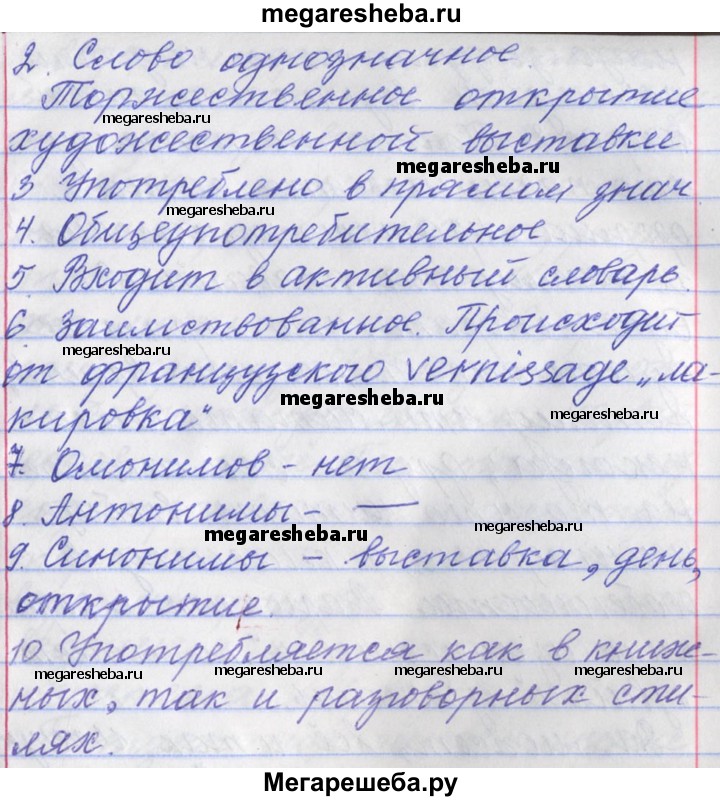 megaresheba.ru
2. Слово однозначное.
Торжественное открытие
megaresheba.ru
художественной выставки.
megaresheba.ru
3. Употреблено в прямом знач
megaresheba.ru
4. Общеупотребительное
5. Входит в активный словарь.
6. Заимствованное. Происходит
megaresheba.ru
от французского vernissage „ла-
megaresheba.ru
кировка“
megaresheba.ru
7. Омонимов - нет
8. Антонимы - —
megaresheba.ru
megaresheba.ru
9. Синонимы - выставка, день,
открытие.
10. Употребляется как в книж-
megaresheba.ru megaresheba.ru megaresheba.ru megaresheba.ru
ных, так и разговорных сти-
лях.
Мегарешеба.ру